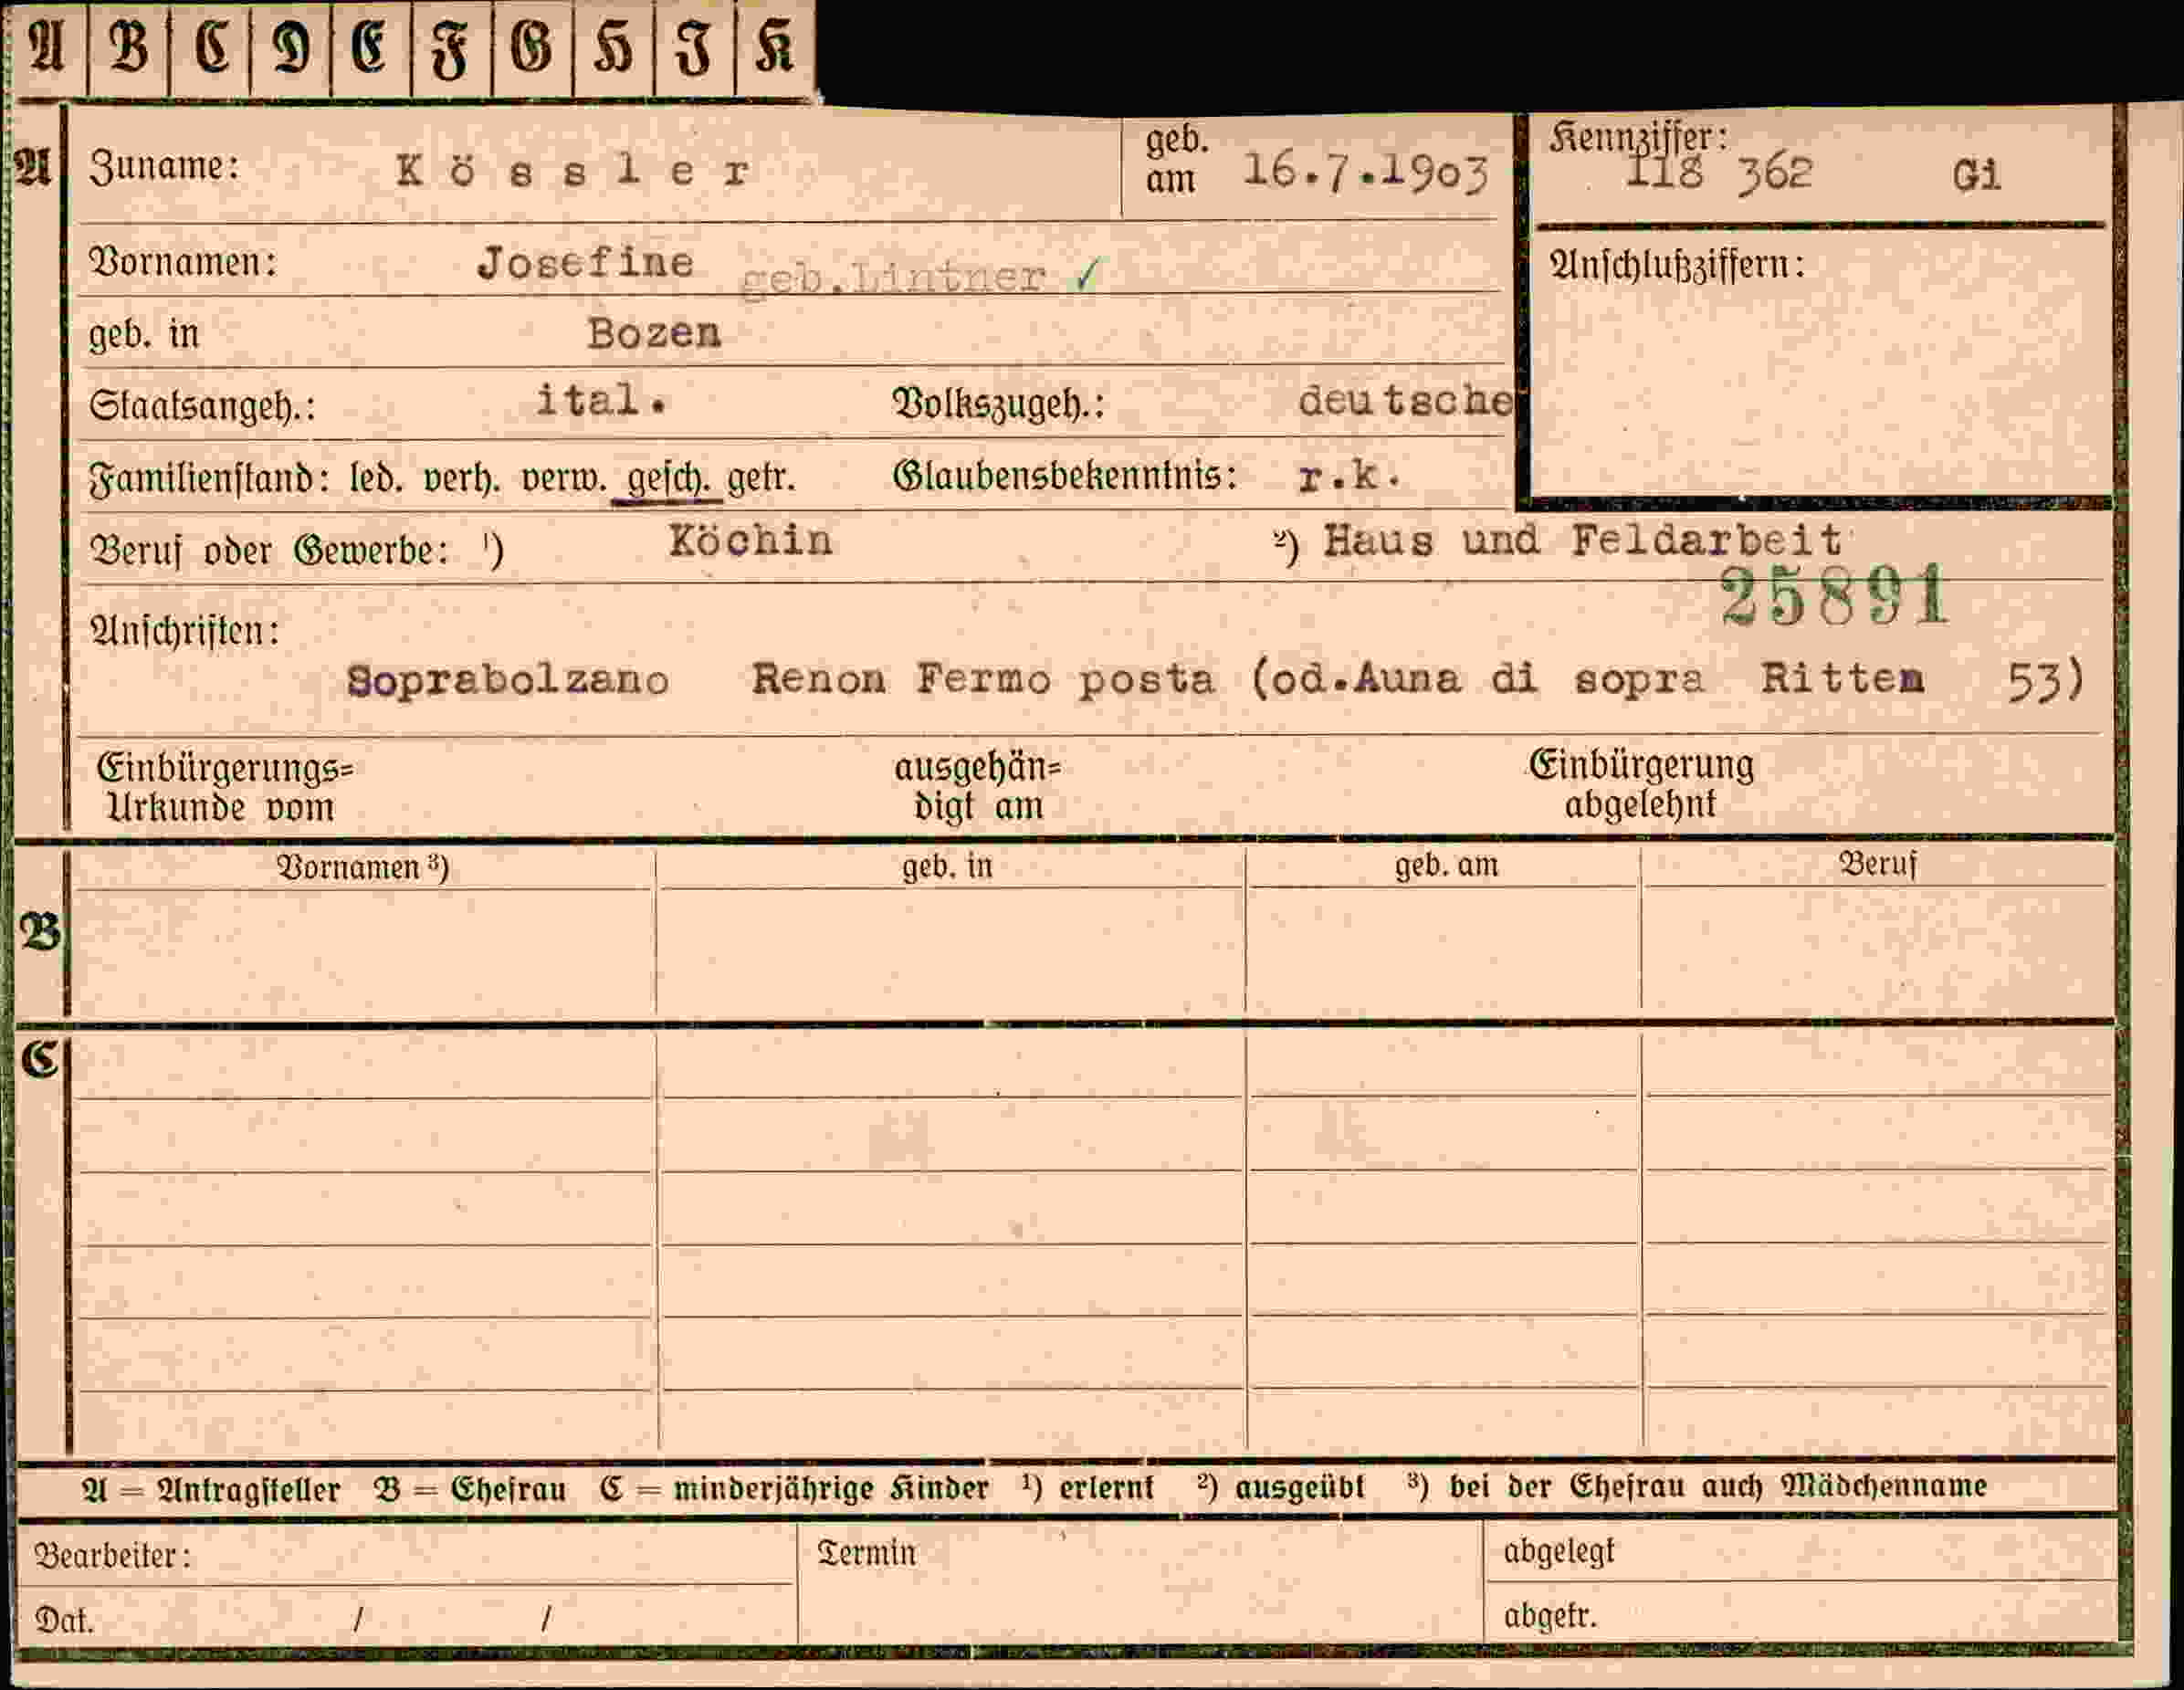 A B C D E F G H J K
A Zuname: Kössler geb. am 16.7.1903 Kennziffer: 118 362 Gi
Vornamen: Josefine geb.Lintner ✓ Anschlußziffern:
geb. in Bozen
Staatsangeh.: ital. Volkszugeh.: deutsche
Familienstand: led. verh. verw. gesch. getr. Glaubensbekenntnis: r.k.
Beruf oder Gewerbe: ¹) Köchin ²) Haus und Feldarbeit
25891
Anschriften:
Soprabolzano Renon Fermo posta (od.Auna di sopra Ritten 53)
Einbürgerungs= ausgehän= Einbürgerung
Urkunde vom digt am abgelehnt
Vornamen ³) geb. in geb. am Beruf
B
C
A = Antragsteller B = Ehefrau C = minderjährige Kinder ¹) erlernt ²) ausgeübt ³) bei der Ehefrau auch Mädchenname
Bearbeiter: Termin abgelegt
Dat. / / abgetr.